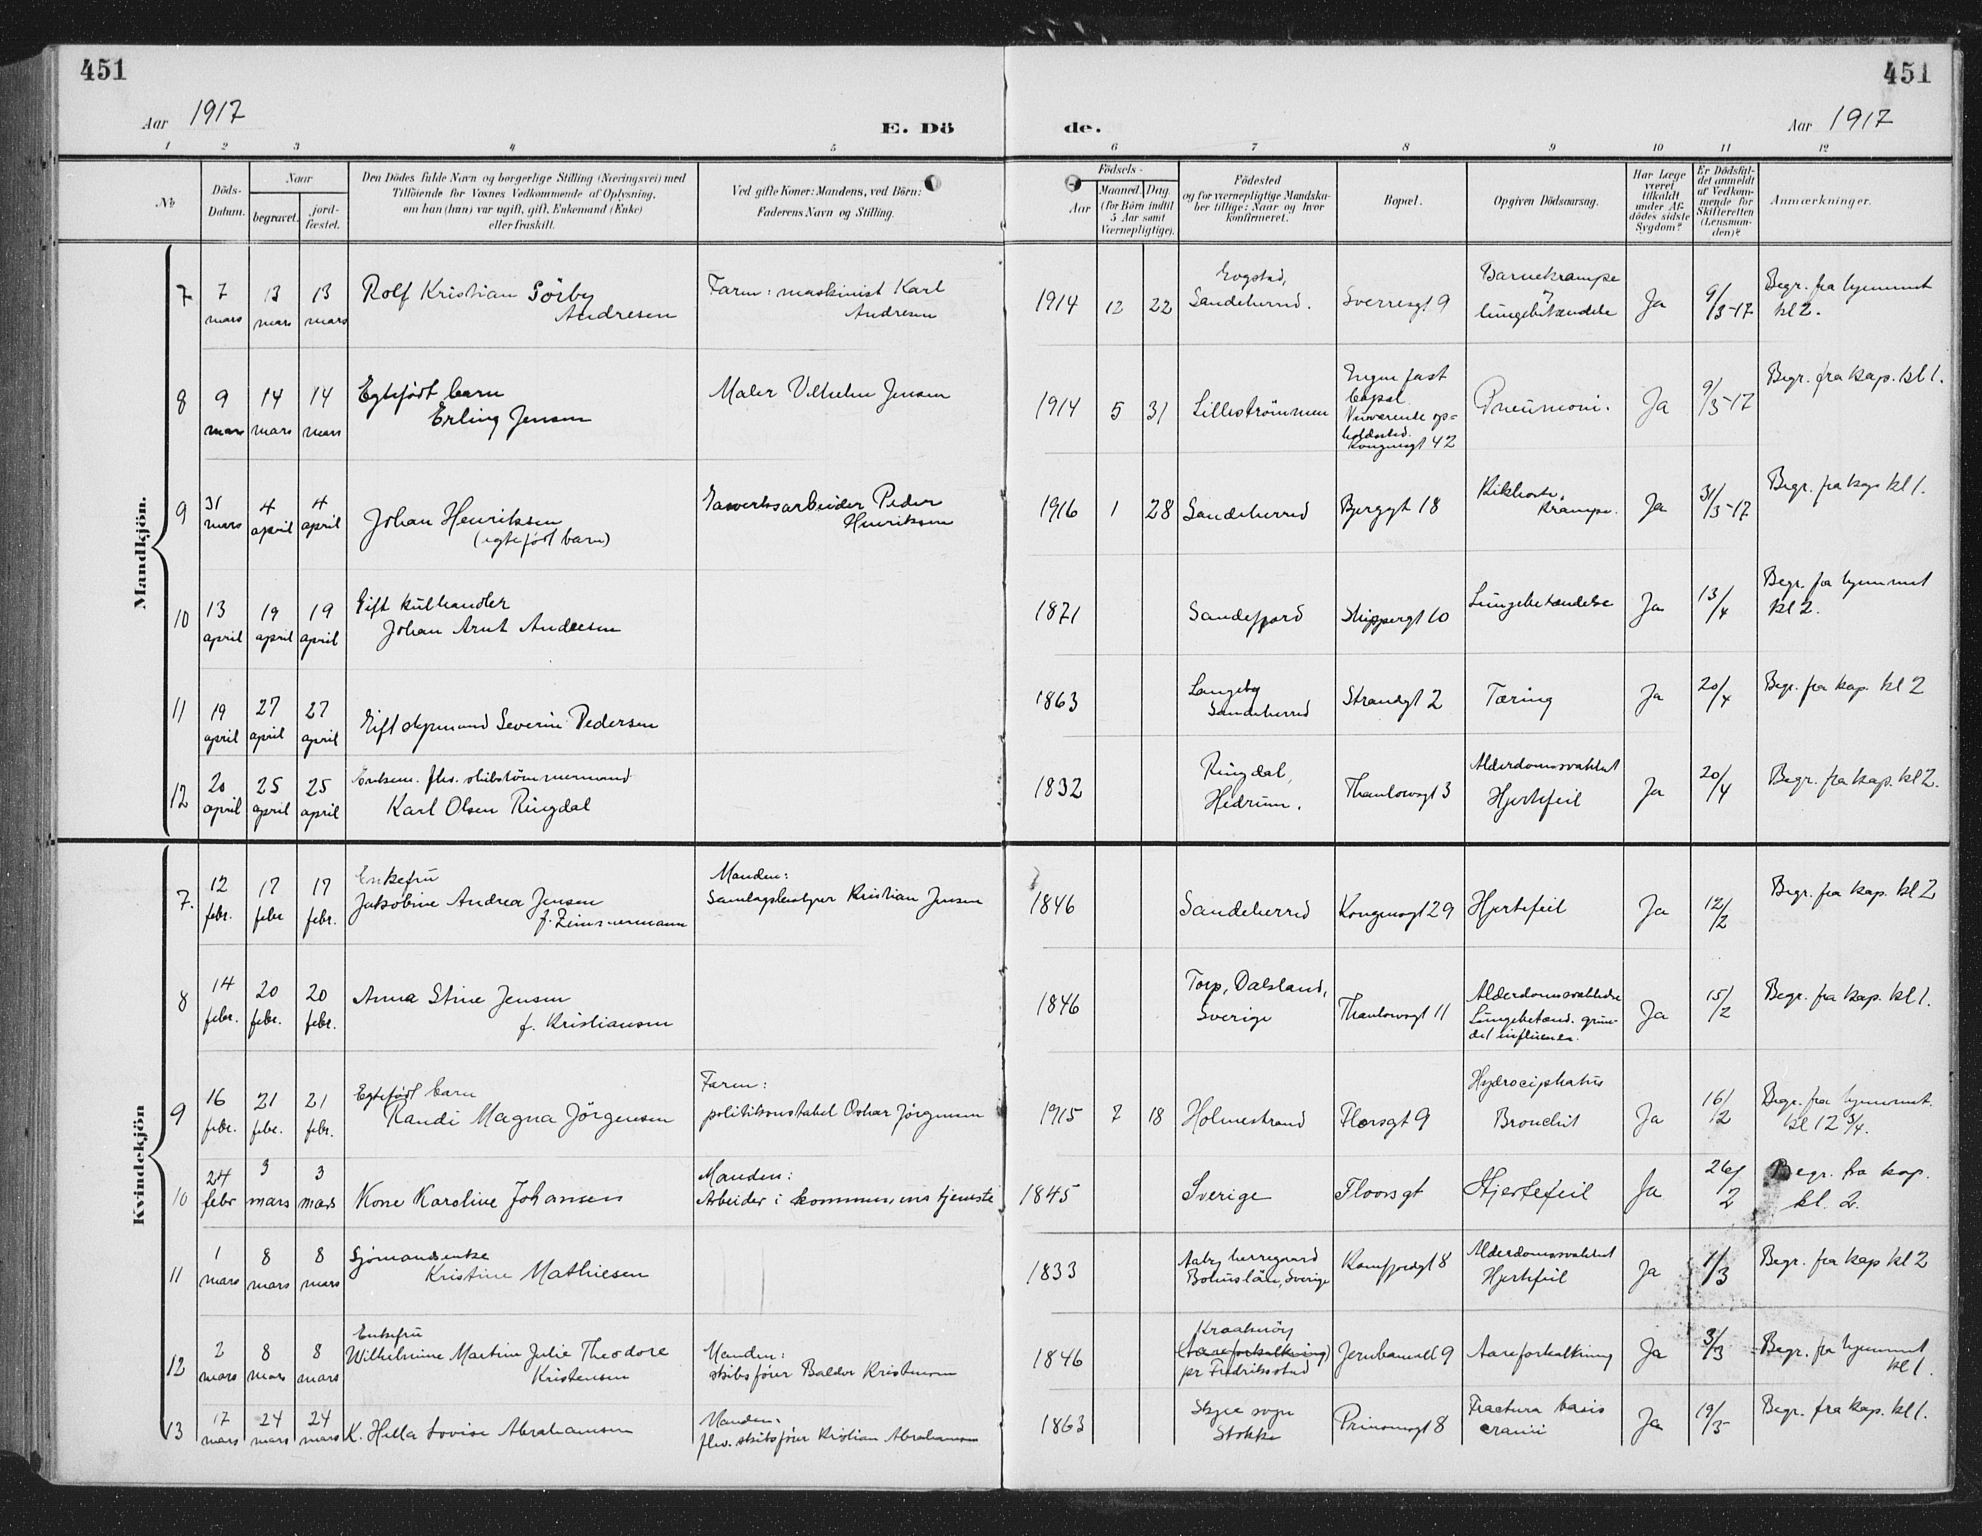 451
451
Aar 1917
E. Dö
de.
Aar 1917
1 2 3 4 5 6 7 8 9 10 11 12
No
Döds-
Datum.
Naar
begravet.
jord-
fæstet.
Den Dödes fulde Navn og borgerlige Stilling (Næringsvei) med
Tilföiende for Voxnes Vedkommende af Oplysning,
om han (hun) var ugift, gift, Enkemand (Enke)
eller fraskilt.
Ved gifte Koner: Mandens, ved Börn:
Faderens Navn og Stilling.
Födsels-
Aar
Maaned. Dag.
(for Börn indtil
5 Aar samt
Værnepligtige).
Födested
og for værnepligtige Mandska-
ber tillige: Naar og hvor
konfirmeret.
Bopæl.
Opgiven Dödsaarsag.
Har Læge
været
tilkaldt
under Af-
dödes sidste
Sygdom?
Er Dödsfal-
det anmeldt
af Vedkom-
mende for
Skifteretten
(Lensman-
den)?
Anmærkninger.
Mandkjön.
7
7 mars
13 mars
13 mars
Rolf Kristian Sörby
Andresen
Faren: maskinist Karl
Andresen
1914 12 22
Sandeherred.
Sverresgt 9
Barnekrampe
lungebetændelse
Ja
9/3-17
Begr. fra hjemmet
kl 2.
8
9 mars
14 mars
14 mars
Egtefödt barn
Erling Jensen
Maler Vilhelm Jensen
1914 5 31
Lillestrømmen
Ingen fast
bopæl.
Nuværende op-
holdssted.
Kongensgt 42
Pneumoni.
Ja
9/3-17
Begr. fra kap. kl 1.
9
31 mars
4 april
4 april
Johan Henriksen
(egtefödt barn)
Gasverksarbeider Peder
Henriksen
1916 1 28
Sandeherred
Bjerggt 18
Kikhoste,
Krampe.
Ja
31/3-17
Begr. fra kap kl 1.
10
13 april
19 april
19 april
Gift kulhandler
Johan Arnt Andresen
1871
Sandefjord
Skippergt 10
Lungebetændelse
Ja
13/4
Begr. fra hjemmet
kl 2.
11
19 april
27 april
27 april
Gift styrmand Severin Pedersen
1863
Langeby
Sandeherred
Strandgt 2
Tæring
Ja
20/4
Begr. fra kap. kl 2
12
20 april
25 april
25 april
Enkem. fhv. skibstömmermand
Karl Olsen Ringdal
1832
Ringdal,
Hedrum.
Thaulowsgt 3
Alderdomssvakhet
Hjertefeil
Ja
20/4
Begr. fra kap. kl 2.
Kvindekjön
7.
12 febr.
17 febr
17 febr.
Enkefru
Jakobine Andrea Jensen
f. Zimmermann
Manden:
Samlagsbestyrer Kristian Jensen
1846
Sandeherred
Kongensgt 29
Hjertefeil
Ja
12/2
Begr. fra kap. kl 2
8
14 febr.
20 febr.
20 febr.
Anna Stine Jensen
f. Kristiansen
1846
Torp, Dalsland,
Sverige
Thaulowsgt 11
Alderdomssvakhedse
Lungebetænd. grun-
det influensa.
Ja
15/2
Begr. fra kap. kl 1.
9
16 febr.
21 febr.
21 febr.
Egtefödt barn
Randi Magna Jörgensen
Faren:
politikonstabel Oskar Jörgensen
1915 7 18
Holmestrand
Florsgt 9
Hydrocephalus
Bronchit
Ja
16/2
Begr. fra hjemmet.
kl 12 3/4.
10
24 febr
3 mars
3 mars
Kone Karoline Johansen
Manden:
Arbeider i kommunens tjeneste
1845
Sverige
Floorsgt
Hjertefeil
Ja
26/2
Begr. fra kap.
kl. 2.
11
1 mars
8 mars
8 mars
Sjømandsenke
Kristine Mathiesen
1833
Aaby herregaard
Bohuslän, Sverige
Kamfjordgt 8
Alderdomssvakhet
Hjertefeil
Ja
1/3
Begr. fra kap kl 2
12
2 mars
8 mars
8 mars
Enkefru
Wilhelmine Martine Julie Theodore
Kristensen
Manden:
skibsfører Balder Kristensen
1846
Kraakeröy
(Aareforkalkning)
pr Fredriksstad
Jernbanealle 9
Aareforkalkning
Ja
3/3
Begr. fra hjemmet
kl 1.
13
17 mars
24 mars
24 mars
K. Hella Lovise Abrahamsen
Manden:
fhv. skibsfører Kristian Abrahamsen
1863
Skjee sogn
Stokke
Prinsensgt 8
Fractura basis
cranii
Ja
19/3
Begr. fra kap. kl 1.